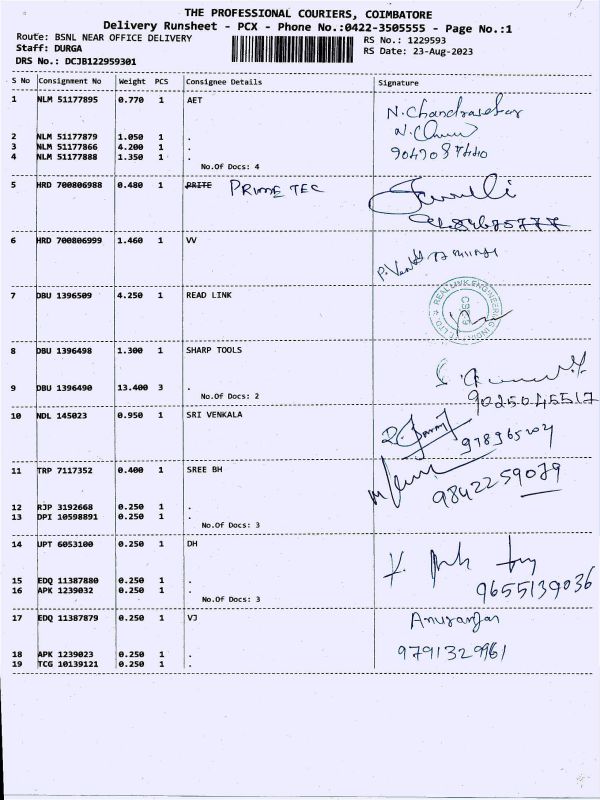 THE PROFESSIONAL COURIERS, COIMBATORE
Delivery Runsheet - PCX - Phone No.:0422-3505555 - Page No.:1
Route: BSNL NEAR OFFICE DELIVERY RS No.: 1229593
Staff: DURGA RS Date: 23-Aug-2023
DRS No.: DCJB122959301
S No Consignment No Weight PCS Consignee Details Signature
1 NLM 51177895 0.770 1 AET N. Chandrasekar
2 NLM 51177879 1.050 1 .
3 NLM 51177866 4.200 1 .
4 NLM 51177888 1.350 1 .
No.Of Docs: 4
5 HRD 700806988 0.480 1 PRITE PRIME TEC
6 HRD 700806999 1.460 1 VV
7 DBU 1396509 4.250 1 READ LINK
REAL LINK ENGINEERING INDIA
8 DBU 1396498 1.300 1 SHARP TOOLS
9 DBU 1396490 13.400 3 . 9025045517
No.Of Docs: 2
10 NDL 145023 0.950 1 SRI VENKALA
11 TRP 7117352 0.400 1 SREE BH 9842259079
12 RJP 3192668 0.250 1 .
13 DPI 10598891 0.250 1 .
No.Of Docs: 3
14 UPT 6053100 0.250 1 DH
15 EDQ 11387880 0.250 1 . 9655139036
16 APK 1239032 0.250 1 .
No.Of Docs: 3
17 EDQ 11387879 0.250 1 VJ
18 APK 1239023 0.250 1 . 9791329961
19 TCG 10139121 0.250 1 .